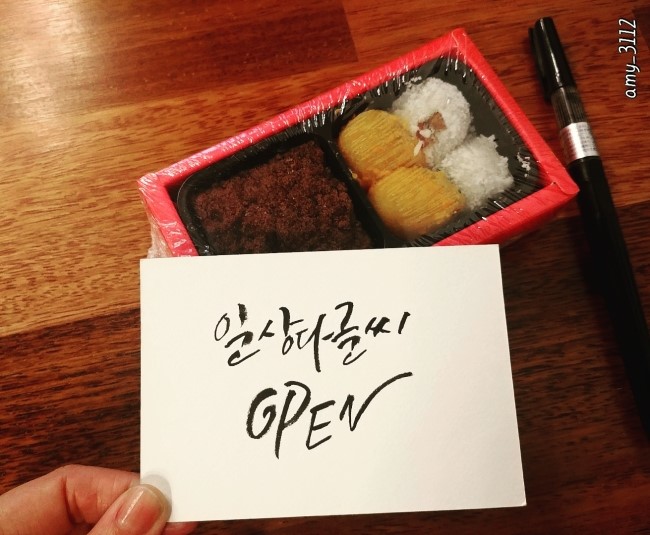 일상다글씨
OPEN
amy_3112